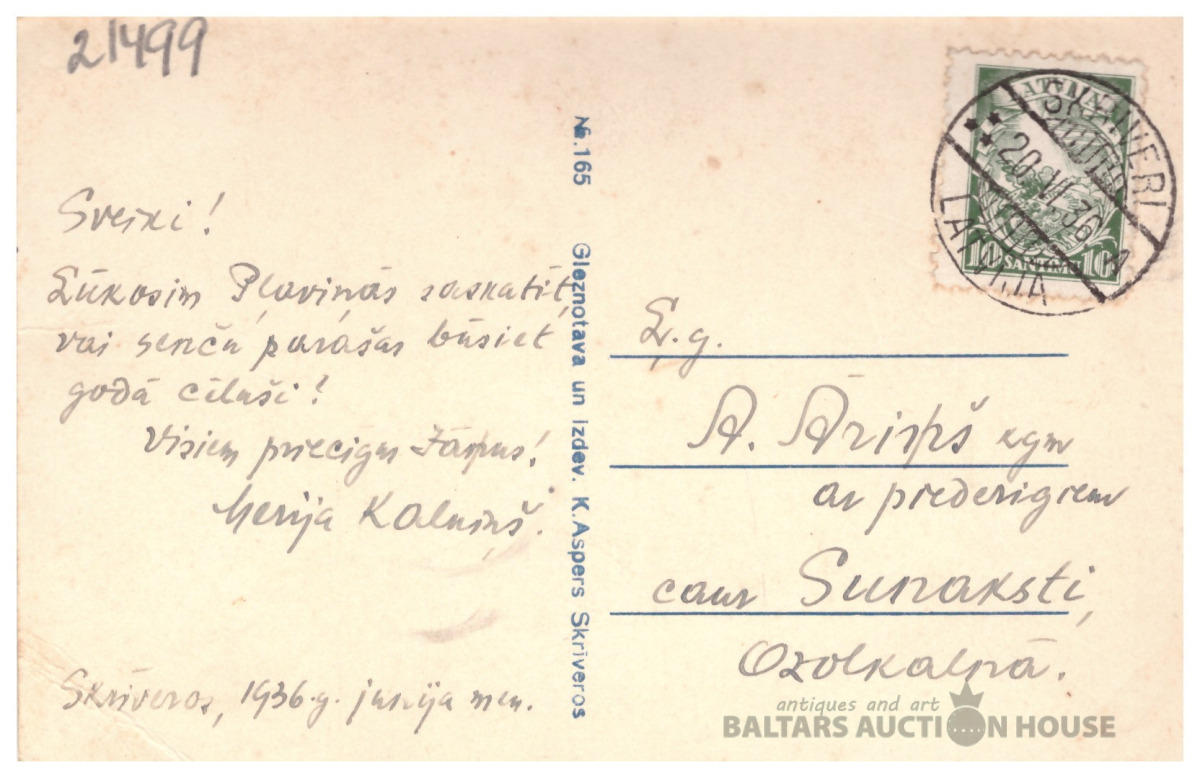 21499
Sveiki!
Lūkosim Pļaviņās saskatīt,
vai senču parašas būsiet
godā cēluši!
Visiem priecīgus Jāņus!
Merija Kalniņš.
Skrīveros, 1936 g. junija mēn.
№.165 Gleznotava un izdev. K.Aspers Skrīveros
LATVIJA
10 SANTIMU 10
SKRIVERI
20 VI 36
LATVIJA
Ļ. g.
A. Āriņš kgm
ar piederīgiem
caur Sunaksti,
Ozolkalnā.
antiques and art
BALTARS AUCTION HOUSE